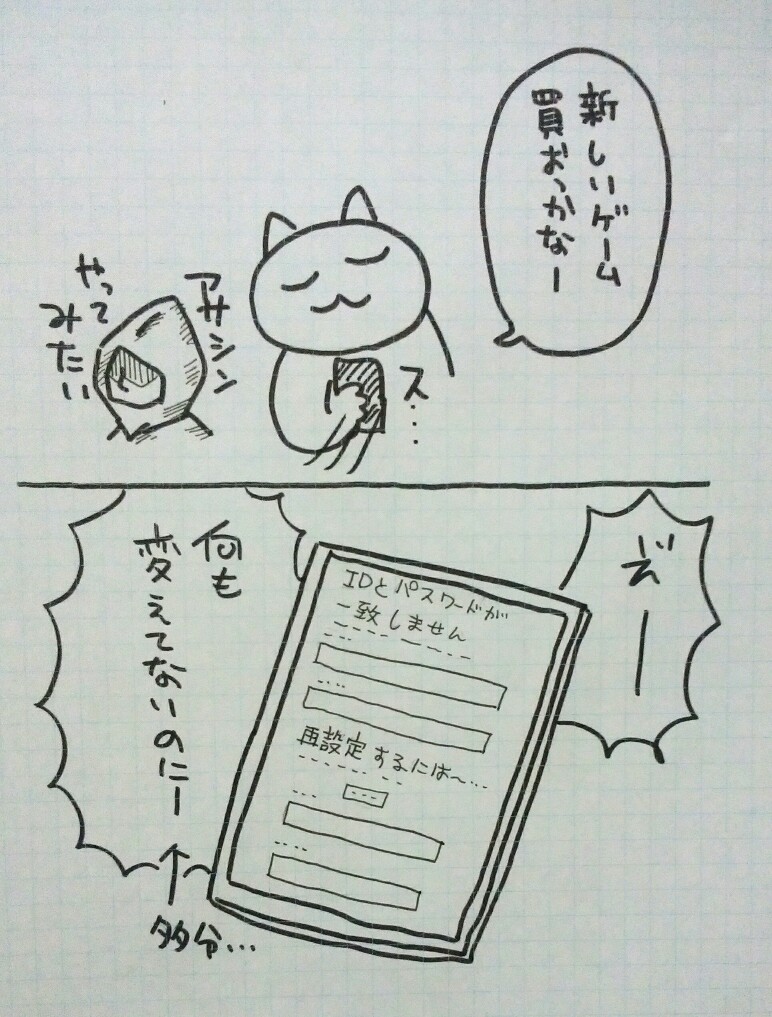 新しいゲーム
買おっかなー
ス…
アサシン
やって
みたい
どえーー
IDとパスワードが
一致しません
再設定するには〜…
何も
変えてないのにー
↑
多分…